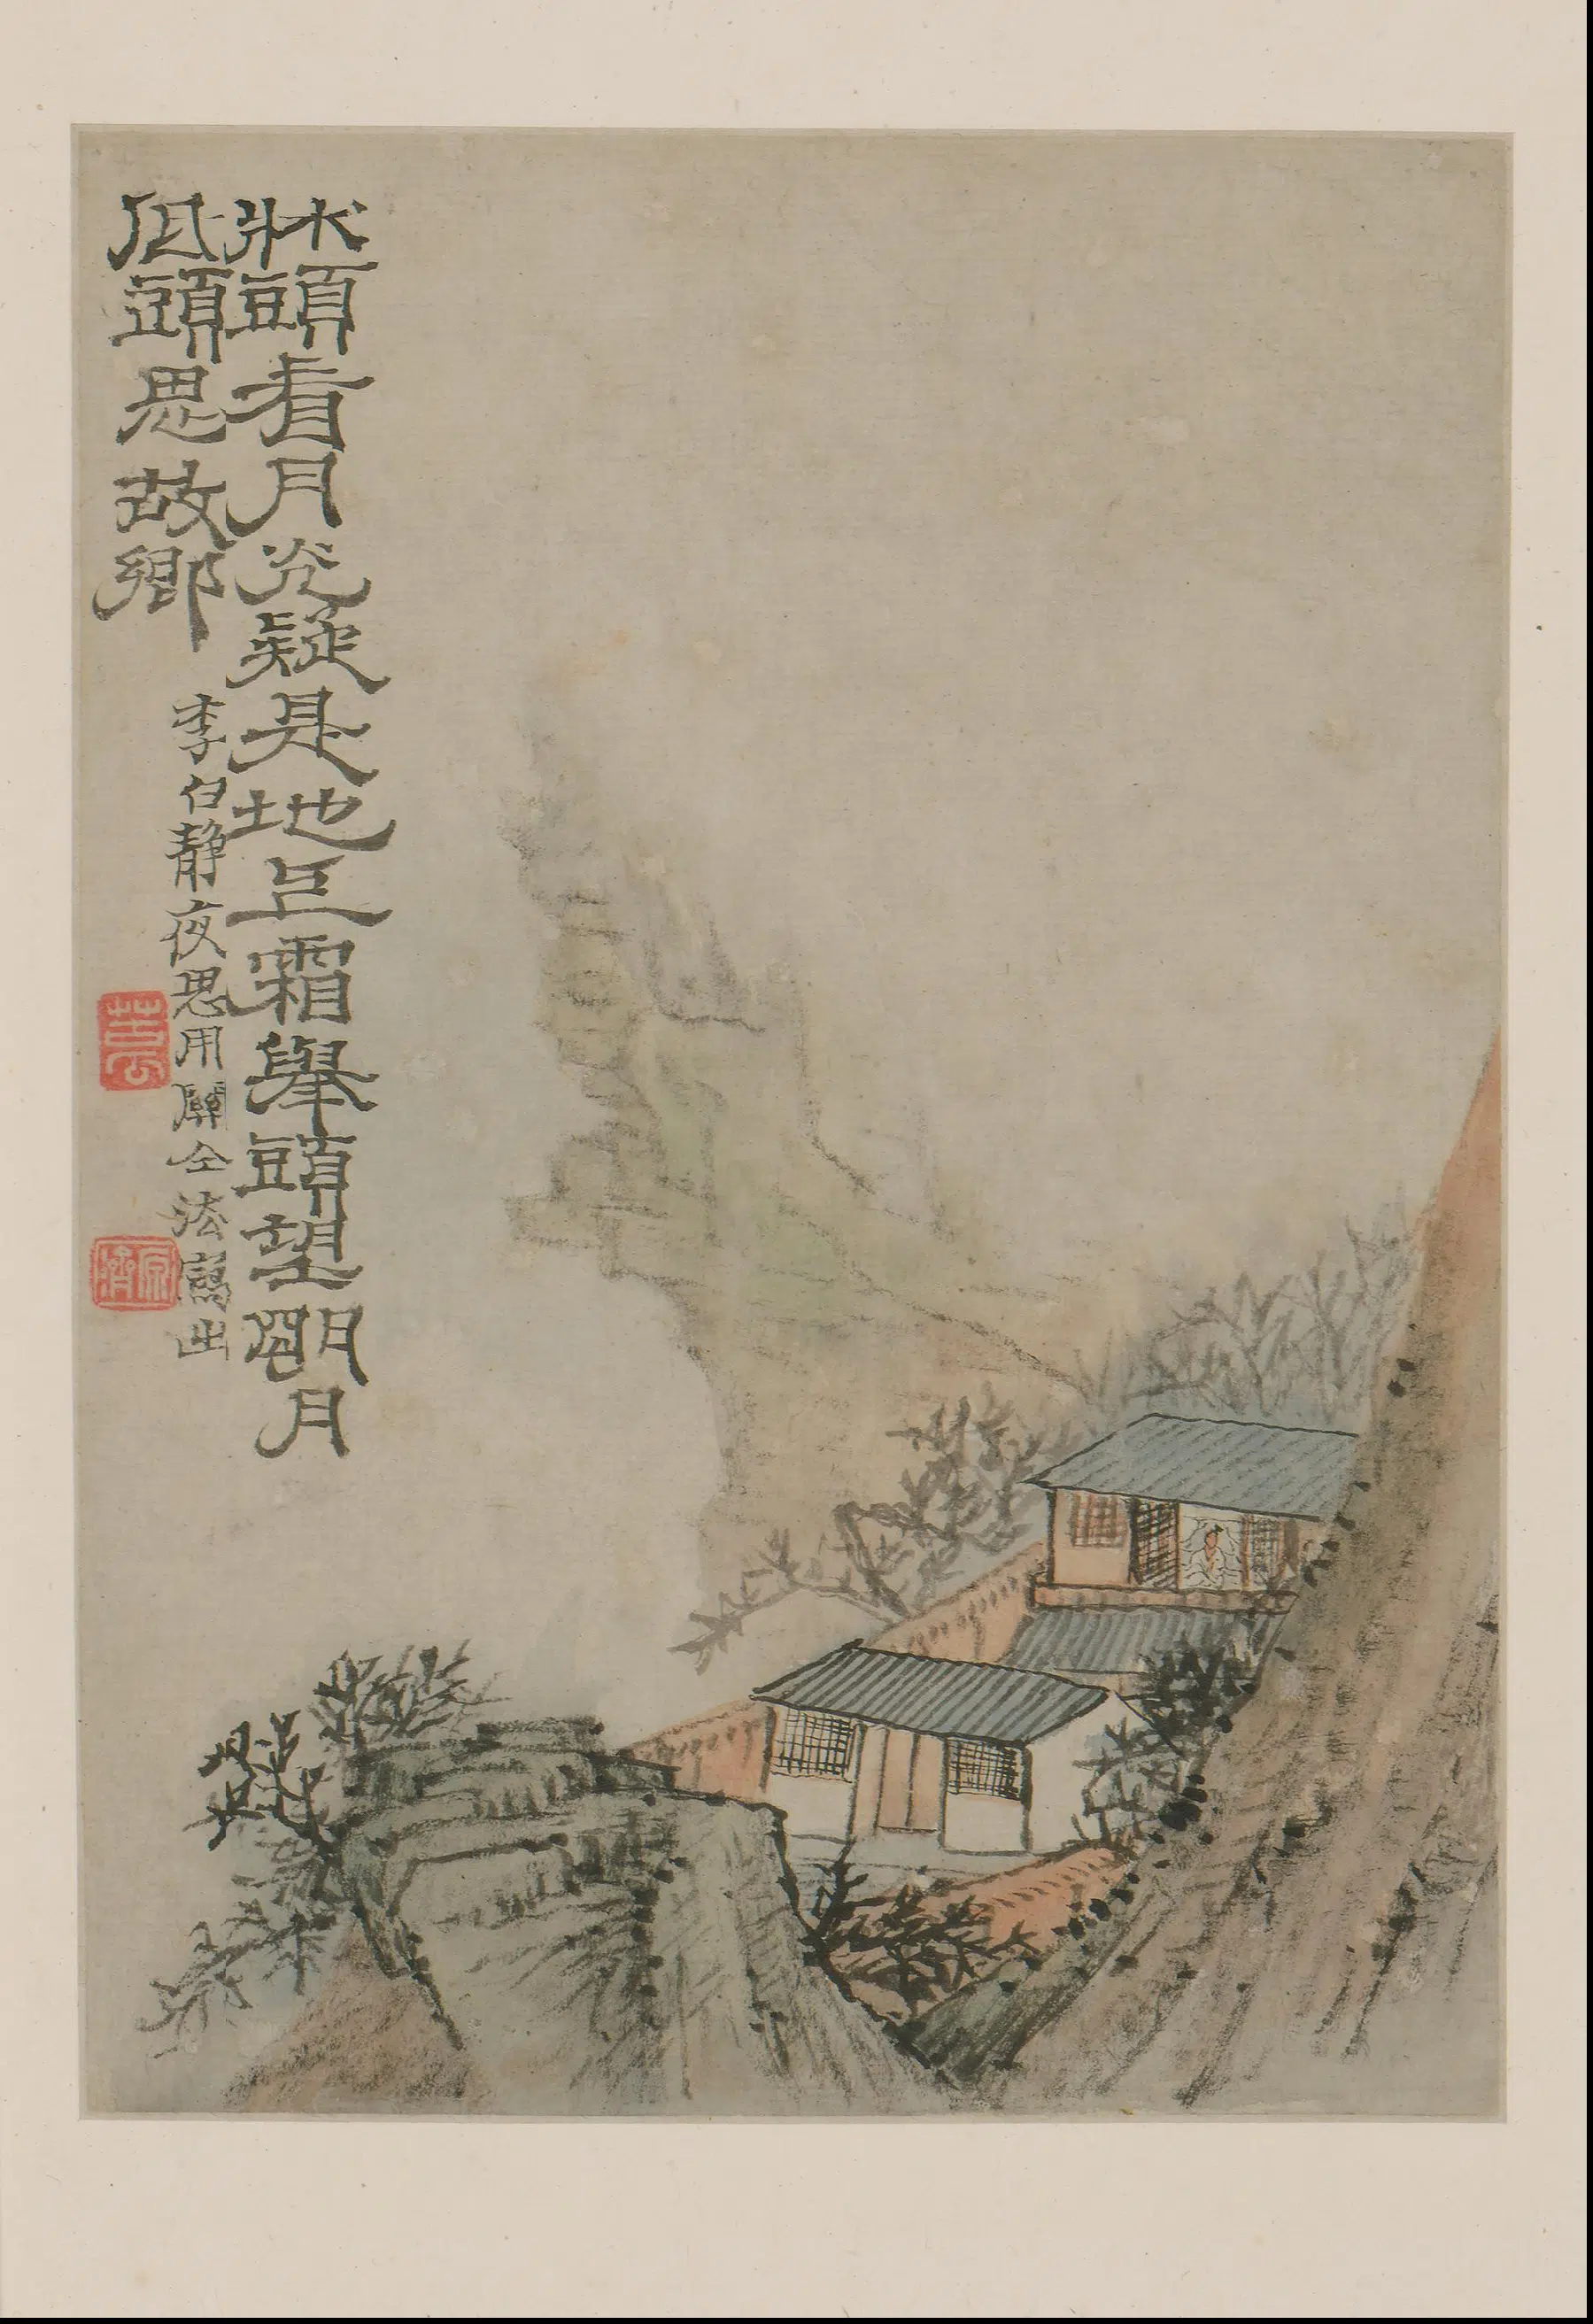 牀頭看月光疑是地上霜舉頭望朙月
低頭思故鄉
李白静夜思用關仝法寫出
苦瓜
原濟